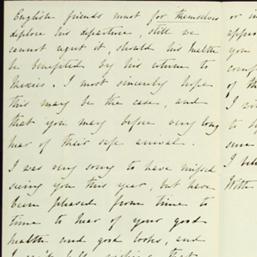 English friends must for themselves
deplore his departure, still we
cannot regret it, should his health
be benefited by his return to
Mexico. I most sincerely hope
this may be the case, and
that you may before very long
hear of their safe arrival.
I was very sorry to have missed
seeing you this year, but have
been pleased from time to
time to hear of your good
health and good looks, and
that
or
app
you
com
of th
I
to
sinc
I
With